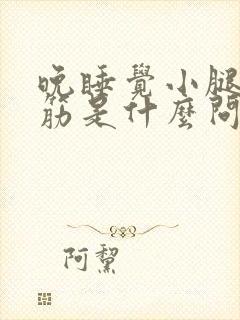 晚睡覺小腿
筋是什麼問
阿黧